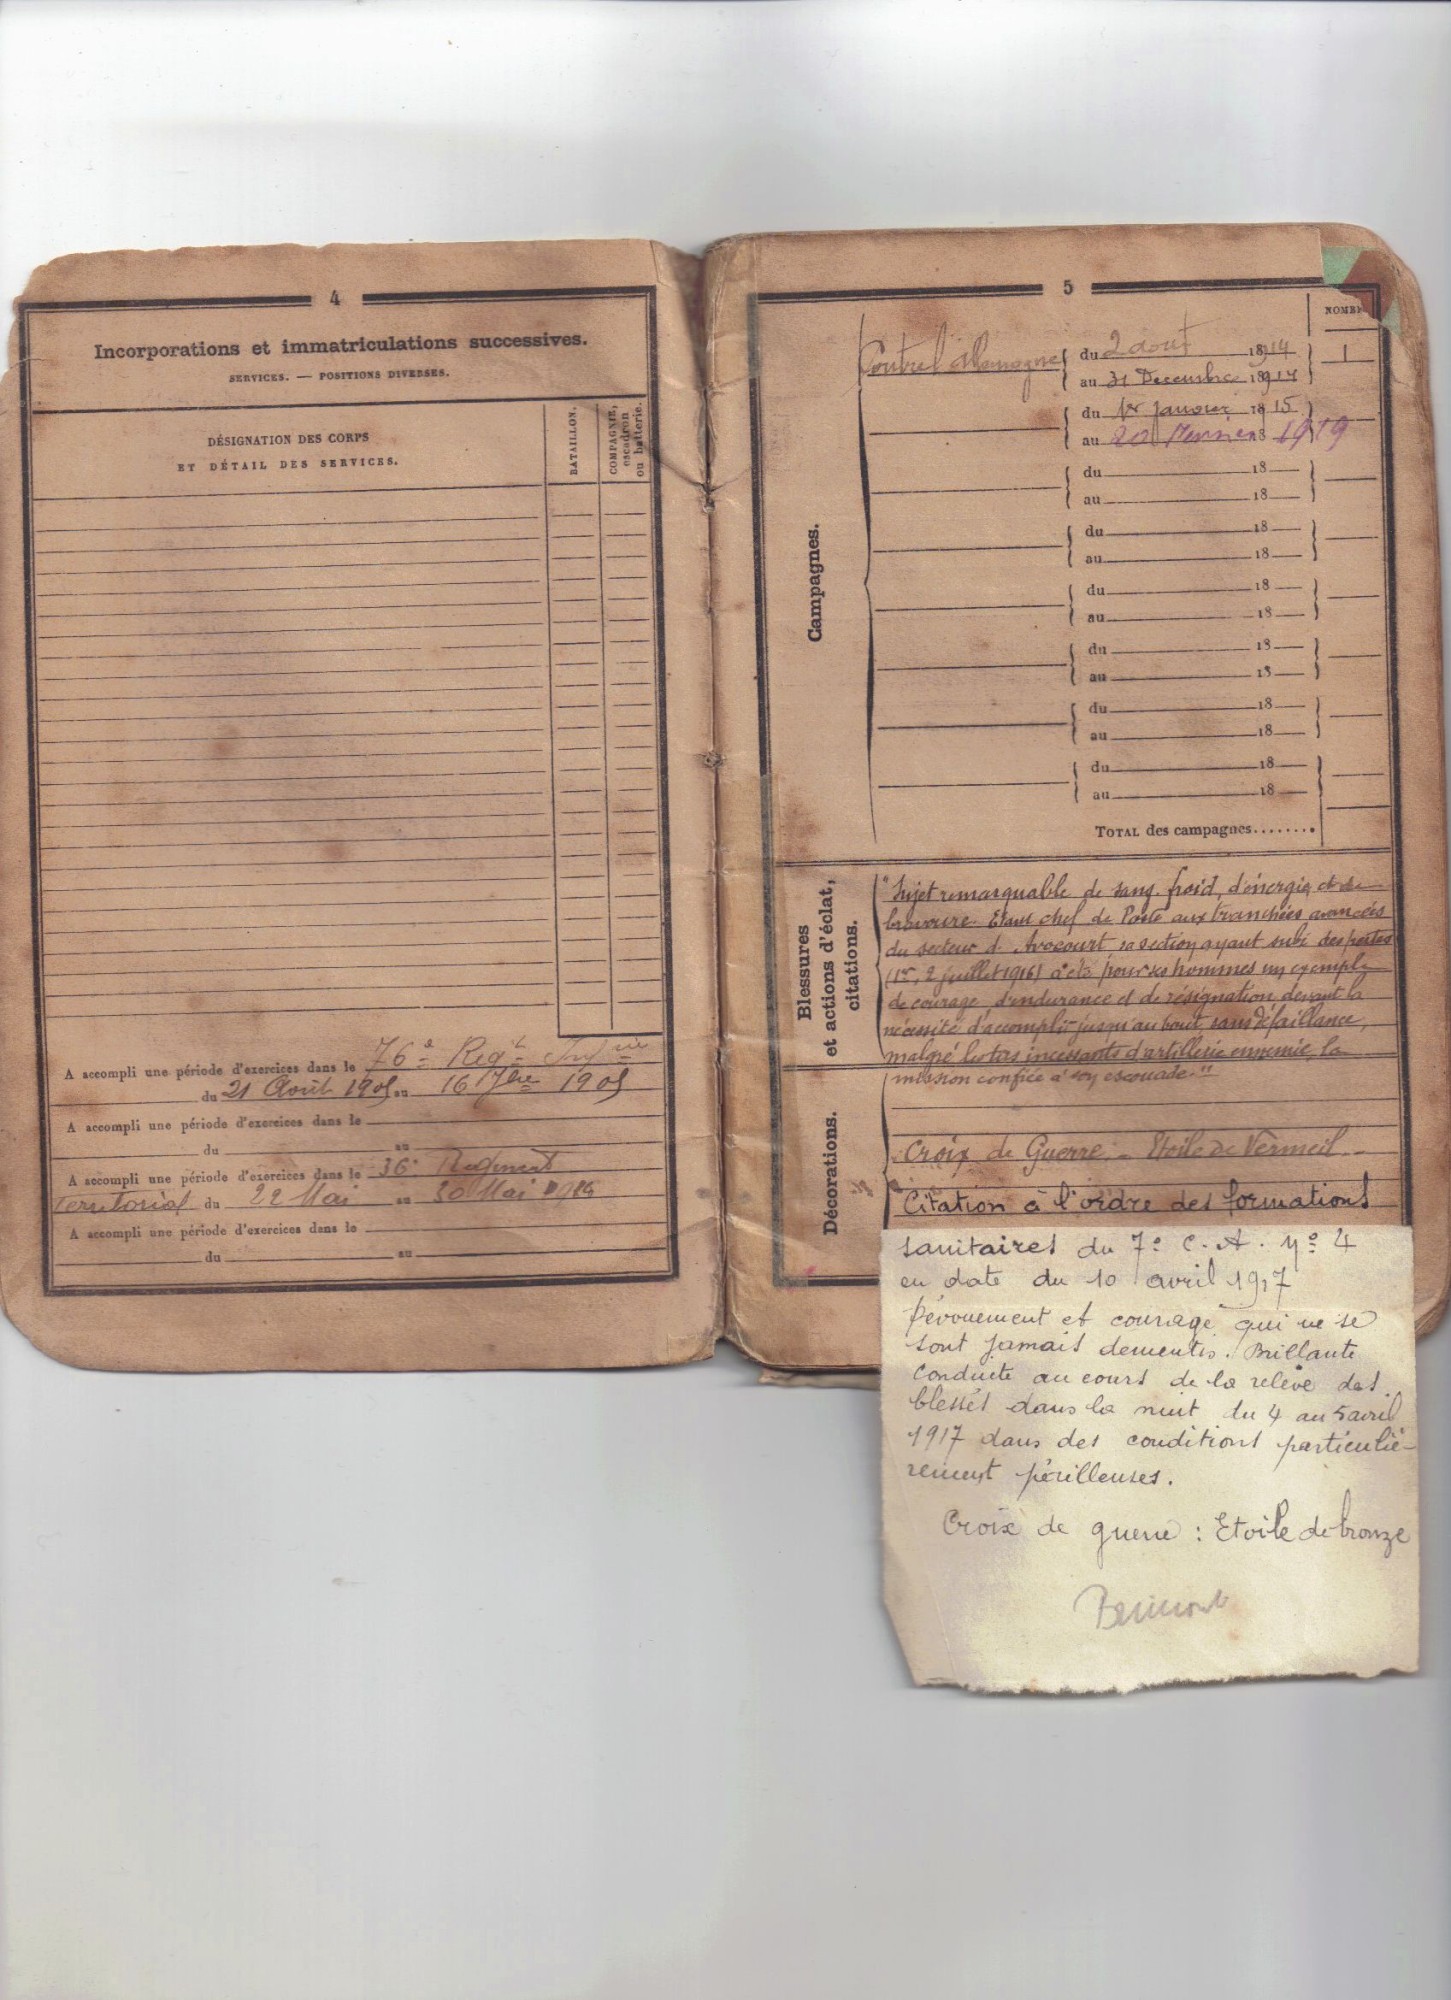 4
Incorporations et immatriculations successives.
SERVICES. — POSITIONS DIVERSES.
DÉSIGNATION DES CORPS
ET DÉTAIL DES SERVICES.
BATAILLON.
COMPAGNIE,
escadron
ou batterie.
A accompli une période d'exercices dans le 76e Regt Infrie
du 21 Août 1905 au 16 7bre 1905
A accompli une période d'exercices dans le
du au
A accompli une période d'exercices dans le 36e Regiment
Territorial du 22 Mai au 30 Mai 1914
A accompli une période d'exercices dans le
du au
5
NOMB
Campagnes.
Contre l'Allemagne du 2 aout 1914 1
au 31 Decembre 1914
du 1er janvier 18 15
au 20 Fevrier 18 1919
du 18
au 18
du 18
au 18
du 18
au 18
du 18
au 18
du 18
au 18
du 18
au 18
TOTAL des campagnes........
Blessures
et actions d'éclat,
citations.
"Sujet remarquable de sang-froid, d'énergie et de
bravoure. Etant chef de Poste aux tranchées avancées
du secteur d'Avocourt sa section ayant subi des pertes
(1er, 2 juillet 1916) a été pour ses hommes un exemple
de courage, d'endurance et de résignation devant la
nécessité d'accomplir jusqu'au bout, sans défaillance,
malgré les tirs incessants d'artillerie ennemie, la
mission confiée à son escouade."
Décorations.
Croix de Guerre – Etoile de Vermeil –
Citation à l'ordre des formations
sanitaires du 7e C.A. No 4
en date du 10 avril 1917
Dévouement et courage qui ne se
sont jamais dementis. Brillante
conduite au cours de la relève des
blessés dans la nuit du 4 au 5 avril
1917 dans des conditions particuliè-
rement périlleuses.
Croix de guerre : Etoile de bronze